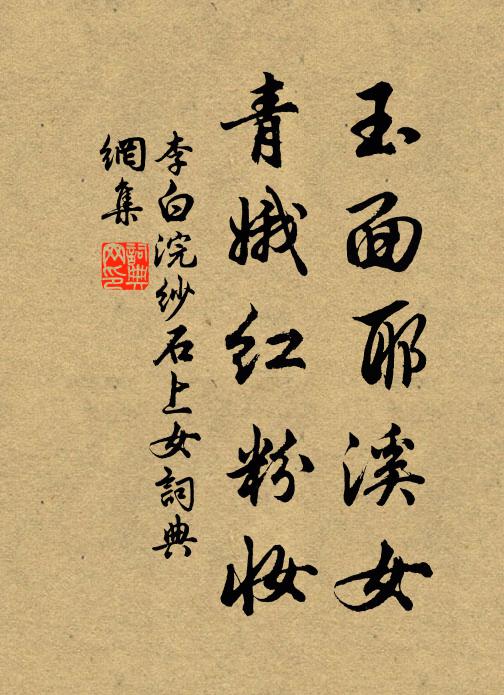 玉面耶溪女
青娥红粉妆
李白浣纱石上女詞典
網集
詞典网印